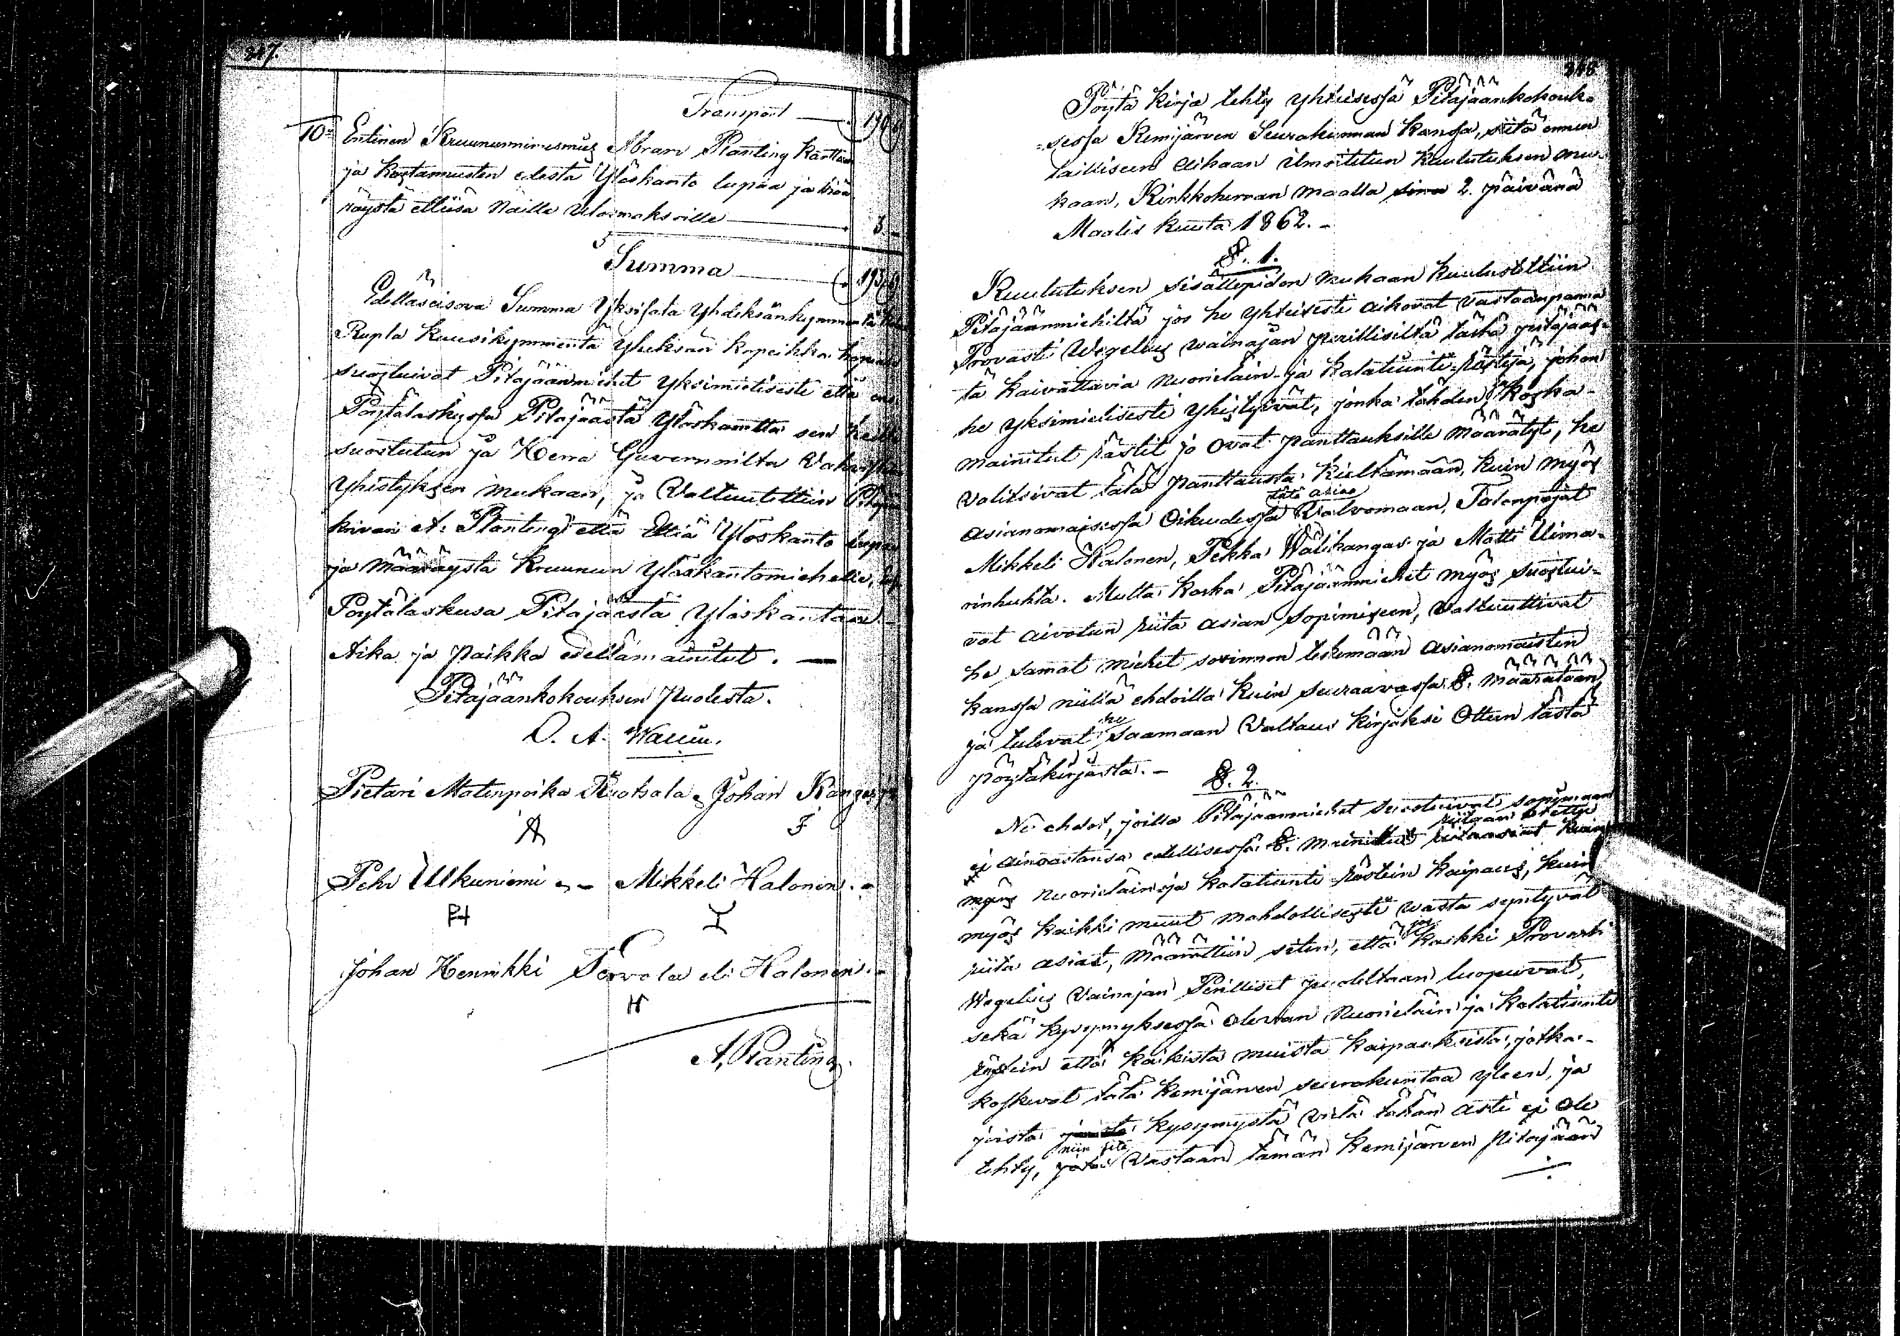 217.
Transport
10: Entinen Kruununnimesmies Abram Planting Kanttan
ja kustannusten edestä Ylöskanto lupaa ja mää
räystä ettiisä näille Ulosmaksoille 3.-
Summa
Edelläseisova Summa Yksisata Yhdeksänkymmentä
Rupla kuusikymmentä yheksän kopeikka hopeas
suostuivat Pitäjäänmiehet yksimielisesti että
Pöytälaskussa Pitäjäästä Ylöskantta sen
suostutun ja Herra Guvernörilta Vahvistetun
Yhistyksen mukaan, ja Valtuutettiin
A: Planting että Ettiä Ylöskanto lupaa
ja määräystä Kruunun Ylöskantomiehelle,
Pöytälaskusa Pitäjäästä Ylöskantaa
Aika ja paikka edellämainitut. —
Pitäjäänkokouksen puolesta.
O. A. Wallin.
Pietari Matinpoika Ruotsala, Johan Kangas
F
Pehr Ulkuniemi, - Mikkeli Halonen. -
PH I
Johan Hennrikki Torvola eli Halonen. -
H
A. Planting.
218
Pöytä kirja tehty yhteisessä Pitäjäänkokouk-
sessa Kemijärven Seurakunnan kanssa, siitä ennen
lailliseen aikaan ilmoitetun kuulutuksen mu-
kaan, Kirkkoherran maalla 2. päivänä
Maalis kuuta 1862. -
§. 1.
Kuulutuksen sisällepidon mukaan kuulusteltiin
Pitäjäänmiehiltä jos he yhteisesti aikovat vastaanpanna
Provasti Wegelius wainajan perillisiltä tästä pitäjääs-
tä kaivattavia nuorieläin- ja kalatiunti-rästejä, johon
he yksimielisesti yhistyivät, jonka tähden, koska
mainitut rästit jo ovat panttauksille määrätyt, he
valitsivat tätä panttausta kieltämään, kuin myös
asianomaisessa Oikeudessa tätä asiaa Valvomaan, Talonpojat
Mikkeli Halonen, Pekka Wälikangas ja Matti Uima-
rinhuhta. Mutta koska Pitäjäänmiehet myös suostui-
vat aivotun riita asian sopimiseen, valtuuttivat
he samat miehet sovinnon tekemään asianomaisten
kanssa niillä ehdoilla kuin seuraavassa §. määrätään,
ja tulevat he saamaan Valtaus kirjaksi Otteen tästä
pöytäkirjasta. -
§. 2.
Ne ehdot, joilla Pitäjäänmiehet suostuivat sopimaan
ei ainoastansa edellisessä §. mainittu riitaan otettu
myös nuorieläin ja kalatiunti rästein kaipaus, kuin
myös kaikki muut mahdollisesti vasta syntyvät
riita asiat, määrättiin seten, että jos kaikki Provasti
Wegelius Vainajan Perilliset puoleltaan luopuvat,
sekä kysymyksessä olevan Nuorieläin ja kalatiunti
rästein että kaikista muista kaipauksista, jotka
koskevat tätä Kemijärven seurakuntaa yleen, ja
joista kysymystä vielä tähän asti ei ole
tehty, niin sitä vastaan tämän Kemijärven Pitäjään